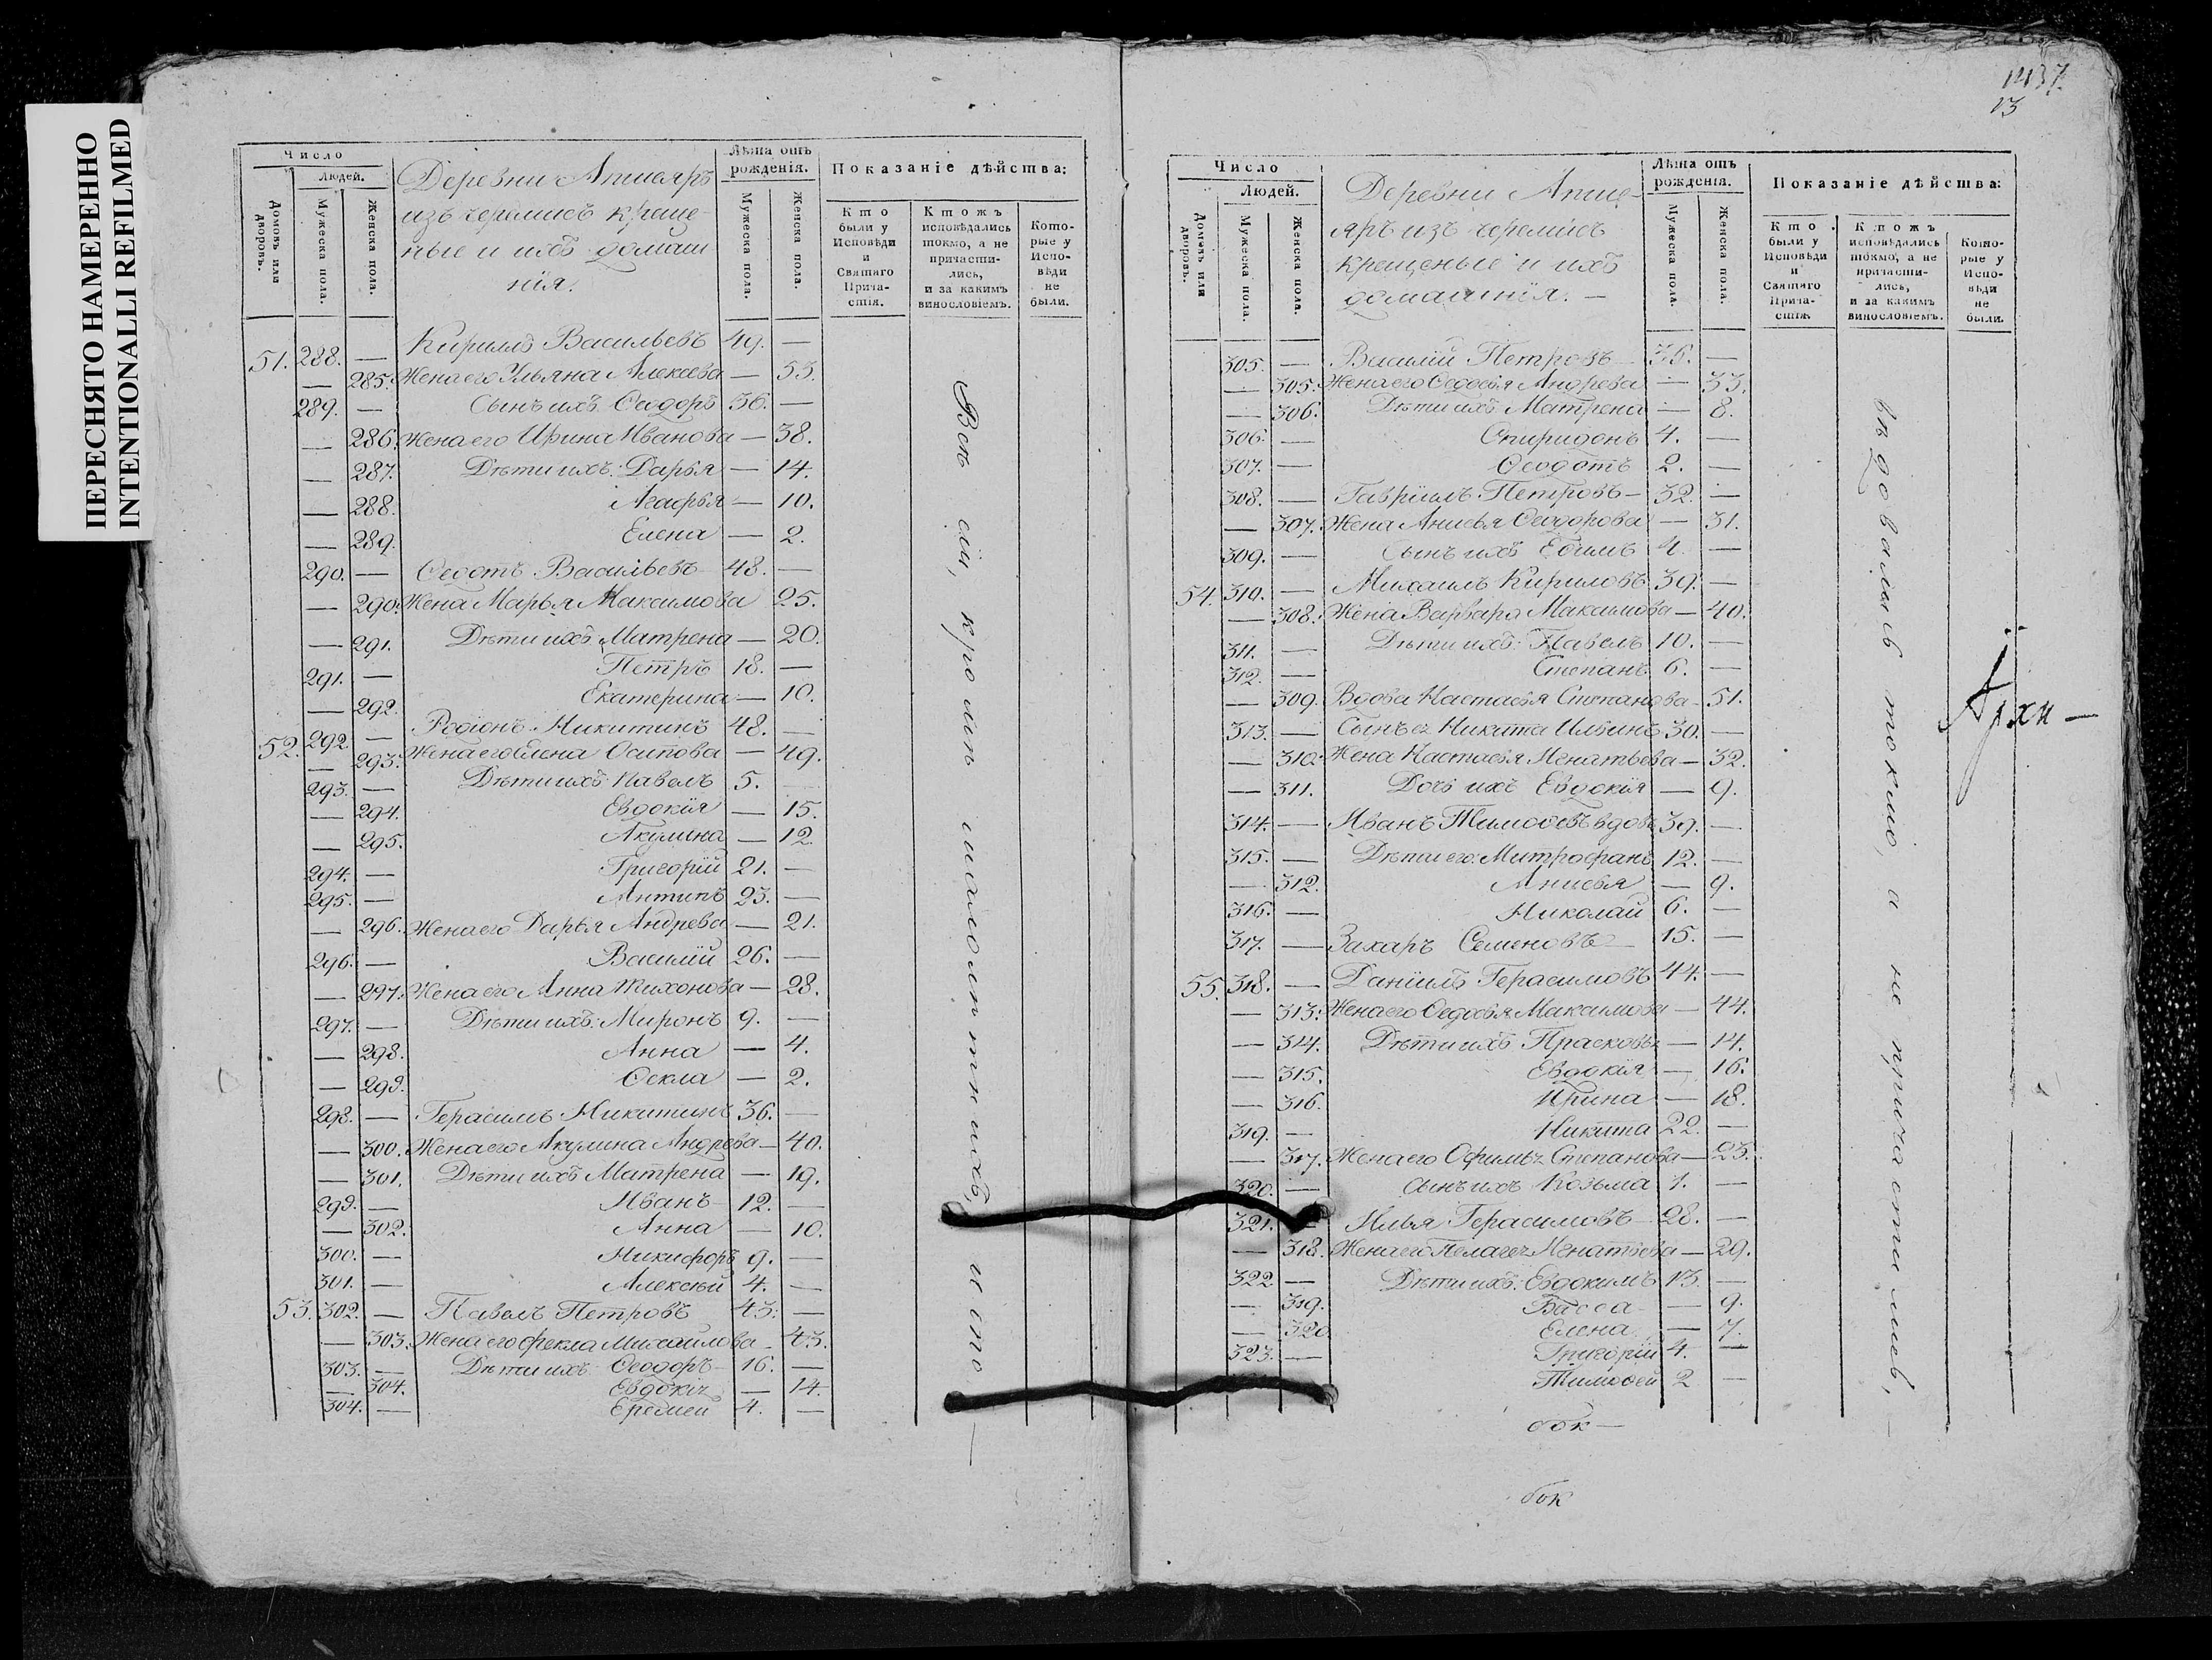 ПЕРЕСНЯТО НАМЕРЕННО
INTENTIONALLI REFILMED
Число
Людей.
Домовъ или дворовъ.
Мужеска пола.
Женска пола.
Деревни Апшеяръ
изъ черемисъ креще-
ные и ихъ домаш
нія.
Лѣта отъ рожденія.
Мужеска пола.
Женска пола.
Показаніе дѣйства:
Кто были у Исповѣди и Святаго Прича-стія.
Ктожъ исповѣдались токмо, а не причасти-лись, и за какимъ винословіемъ.
Кото-рые у Испо-вѣди не были.
51. 288. — Кирилъ Васильевъ 49. —
— 285. Жена его Ульяна Алексѣева — 53.
289. — Сынъ ихъ Ѳеодоръ 36. —
— 286. Жена его Ирина Иванова — 38.
— 287. Дѣти ихъ: Дарья — 14.
— 288. Агафья — 10.
— 289. Елена — 2.
290. — Ѳедотъ Васильевъ 48. —
— 290. Жена Марья Максимова 25.
— 291. Дѣти ихъ Матрена — 20.
291. — Петръ 18. —
— 292. Екатерина — 10.
52. 292. — Родіонъ Никитинъ 48. —
— 293. Жена его Елена Осипова — 49.
293. — Дѣти ихъ Павелъ 5. —
— 294. Евдокія — 15.
— 295. Акулина — 12.
294. — Григорій 21. —
295. — Антипъ 23. —
— 296. Жена его Дарья Андрева — 21.
296. — Василій 26. —
— 297. Жена его Анна Тихонова — 28.
297. — Дѣти ихъ: Миронъ 9. —
— 298. Анна — 4.
— 299. Ѳекла — 2.
298. — Герасимъ Никитинъ 36. —
— 300. Жена его Акулина Андрева — 40.
— 301. Дѣти ихъ Матрена — 19.
299. — Иванъ 12. —
— 302. Анна — 10.
300. — Никифоръ 9. —
301. — Алексѣй 4. —
53. 302. — Павелъ Петровъ 43. —
— 303. Жена его Фекла Михайлова — 43.
303. — Дѣти ихъ Ѳеодоръ 16. —
— 304. Евдокія — 14.
304. — Еремей 4. —
Всѣ сіи, кромѣ малолѣтнихъ, и спо—
1437.
13
Число
Людей.
Домовъ или дворовъ.
Мужеска пола.
Женска пола.
Деревни Апше-
яръ изъ черемисъ
крещеные и ихъ
домашнія. —
Лѣта отъ рожденія.
Мужеска пола.
Женска пола.
Показаніе дѣйства:
Кто были у Исповѣди и Святаго Прича-стія.
Ктожъ исповѣдались токмо, а не причасти-лись, и за какимъ винословіемъ.
Кото-рые у Испо-вѣди не были.
305. — Василій Петровъ 36. —
— 305. Жена его Ѳедосья Андрева — 33.
— 306. Дѣти ихъ Матрена — 8.
306. — Спиридонъ 4. —
307. — Ѳеодотъ 2. —
308. — Гавріилъ Петровъ — 32. —
— 307. Жена Анисья Ѳеодорова — 31.
309. — Сынъ ихъ Ефимъ 4. —
54. 310. — Михаилъ Кириловъ 39. —
— 308. Жена Варвара Максимова — 40.
311. — Дѣти ихъ: Павелъ 10. —
312. — Степанъ 6. —
— 309. Вдова Настасья Степанова — 51.
313. — Сынъ ея Никита Ильинъ 30. —
— 310. Жена Настасья Игнатьева — 32.
— 311. Дочь ихъ Евдокія — 9.
314. — Иванъ Тимофеевъ вдовъ 39. —
315. — Дѣти его: Митрофанъ 12. —
— 312. Анисья — 9.
316. — Николай 6. —
317. — Захаръ Семеновъ 15. —
55. 318. — Даніилъ Герасимовъ 44. —
— 313. Жена его Ѳедосья Максимова — 44.
— 314. Дѣти ихъ Прасковья — 14.
— 315. Евдокія — 16.
— 316. Ирина — 18.
319. — Никита 22. —
— 317. Жена его Офимья Степанова — 23.
320. — Сынъ ихъ Козьма 1. —
321. — Илья Герасимовъ — 28. —
— 318. Жена его Пелагея Игнатьева — 29.
322 — Дѣти ихъ: Евдокимъ 13. —
— 319. Васса — 9.
— 320 Елена — 7.
323. — Григорій 4. —
Тимофей 2 —
вѣдовались токмо, а не причастились, —
Архи —